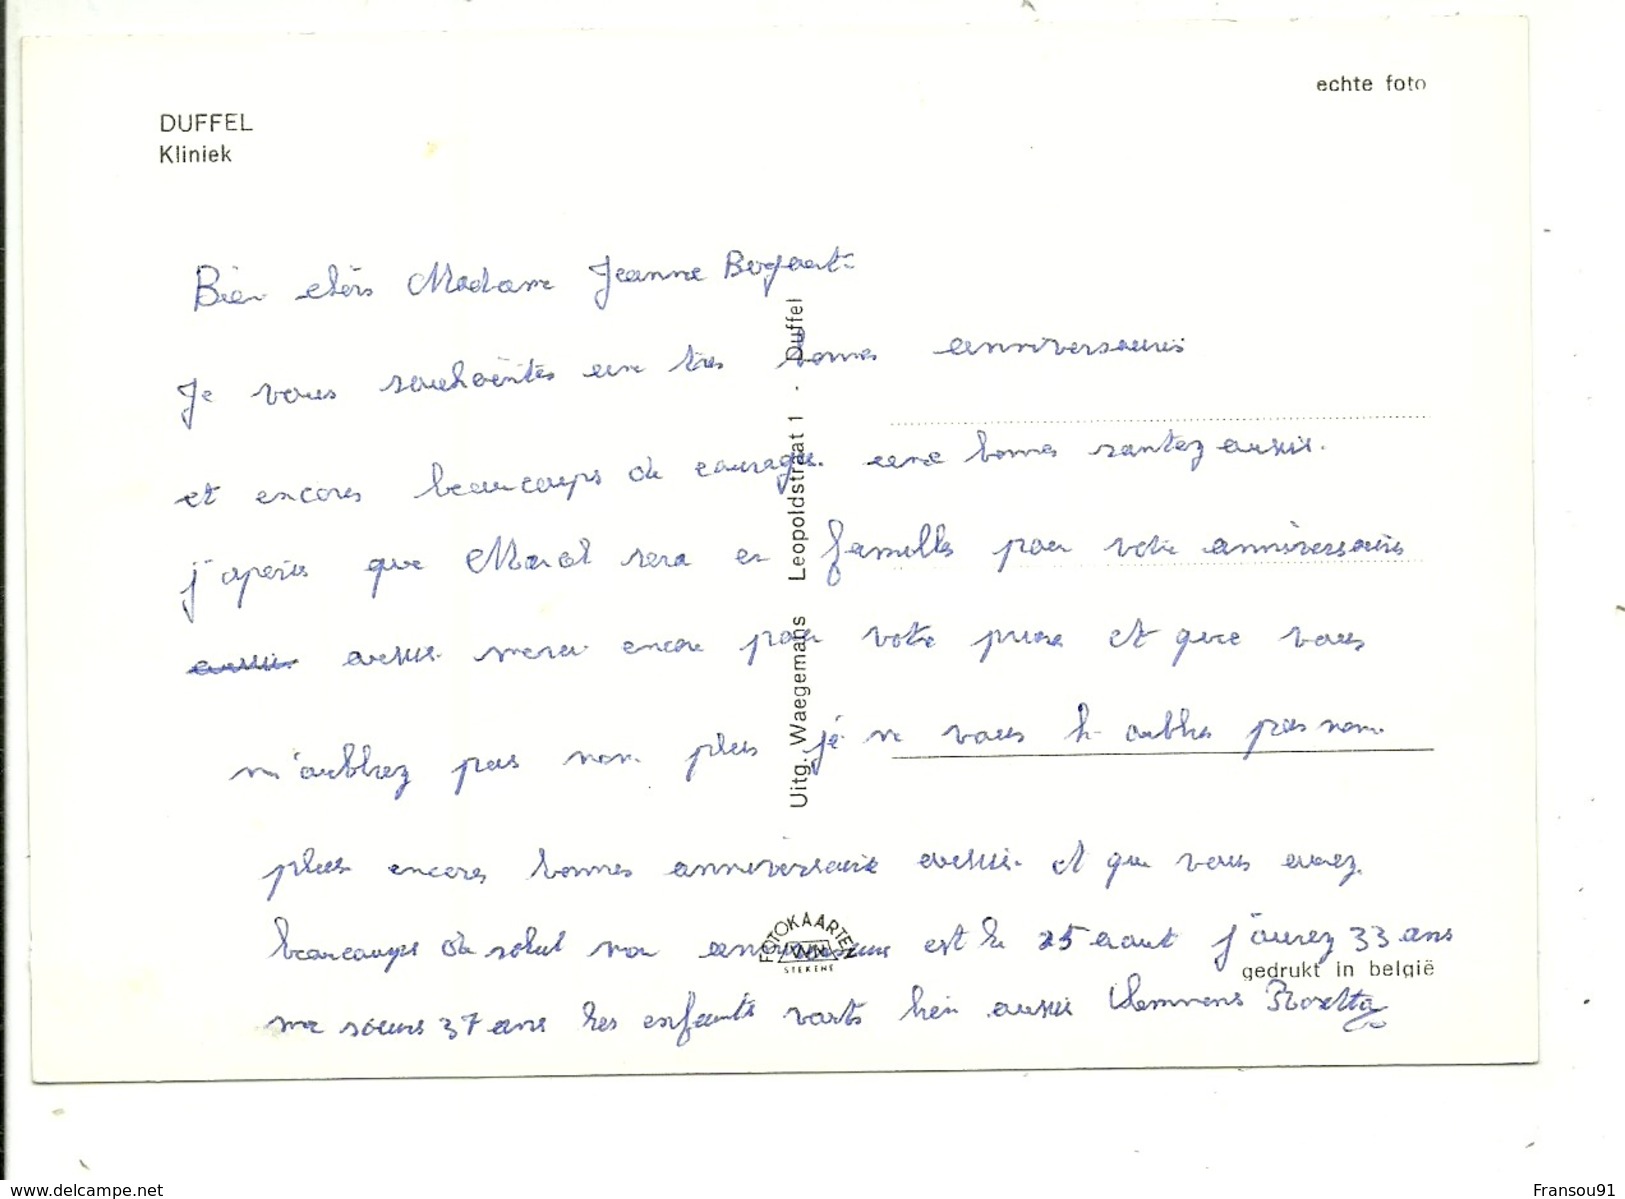 echte foto
DUFFEL
Kliniek
Bien chérs Madame Jeanne Bogaert
Je vous souhoëntes une très bonnes anniversaires
et encores beaucoups de courages. une bonnes santez aussi.
j'aperes que Marcel sera en familles pour votre anniversaires
aussi aussi merci encore pour votre prune et que vous
m'oubliez pas non plus je ne vous h oublies pas non
plus encores bonnes anniversaire aussi et que vous avez
beaucoups de soleil mon anniversaire est le 25 aout j'aurez 33 ans
ma soeurs 37 ans les enfants vonts bien aussi Clemmens Rosetta
Uitg. Waegemans Leopoldstraat 1 - Duffel
FOTOKAARTEN
STEKENE
gedrukt in belgië
www.delcampe.net
Fransou91